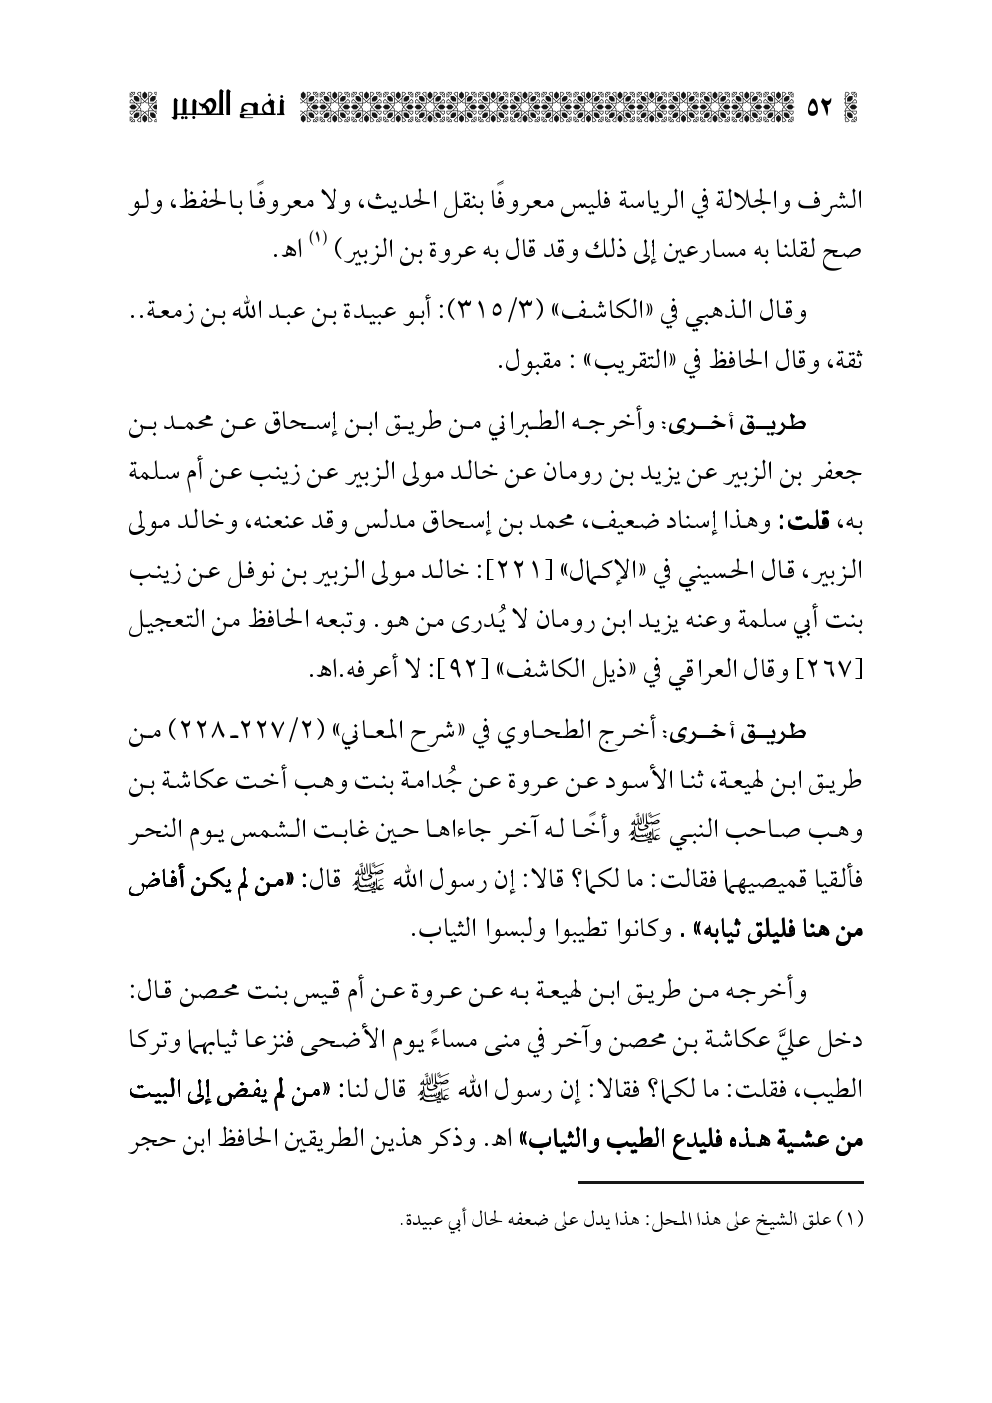 ٥٢ نفح العبير
الشرف والجلالة في الرياسة فليس معروفًا بنقل الحديث، ولا معروفًا بالحفظ، ولو
صح لقلنا به مسارعين إلى ذلك وقد قال به عروة بن الزبير) (١) اهـ.
وقال الذهبي في «الكاشف» (٣/ ٣١٥): أبو عبيدة بن عبد الله بن زمعة..
ثقة، وقال الحافظ في «التقريب» : مقبول.
طريق أخرى: وأخرجه الطبراني من طريق ابن إسحاق عن محمد بن
جعفر بن الزبير عن يزيد بن رومان عن خالد مولى الزبير عن زينب عن أم سلمة
به، قلت: وهذا إسناد ضعيف، محمد بن إسحاق مدلس وقد عنعنه، وخالد مولى
الزبير، قال الحسيني في «الإكمال» [٢٢١]: خالد مولى الزبير بن نوفل عن زينب
بنت أبي سلمة وعنه يزيد ابن رومان لا يُدرى من هو. وتبعه الحافظ من التعجيل
[٢٦٧] وقال العراقي في «ذيل الكاشف» [٩٢]: لا أعرفه.اهـ.
طريق أخرى: أخرج الطحاوي في «شرح المعاني» (٢/ ٢٢٧ـ ٢٢٨) من
طريق ابن لهيعة، ثنا الأسود عن عروة عن جُدامة بنت وهب أخت عكاشة بن
وهب صاحب النبي ﷺ وأخًا له آخر جاءاها حين غابت الشمس يوم النحر
فألقيا قميصيهما فقالت: ما لكما؟ قالا: إن رسول الله ﷺ قال: «من لم يكن أفاض
من هنا فليلق ثيابه» . وكانوا تطيبوا ولبسوا الثياب.
وأخرجه من طريق ابن لهيعة به عن عروة عن أم قيس بنت محصن قال:
دخل عليَّ عكاشة بن محصن وآخر في منى مساءً يوم الأضحى فنزعا ثيابهما وتركا
الطيب، فقلت: ما لكما؟ فقالا: إن رسول الله ﷺ قال لنا: «من لم يفض إلى البيت
من عشية هذه فليدع الطيب والثياب» اهـ. وذكر هذين الطريقين الحافظ ابن حجر
(١) علق الشيخ على هذا المحل: هذا يدل على ضعفه لحال أبي عبيدة.